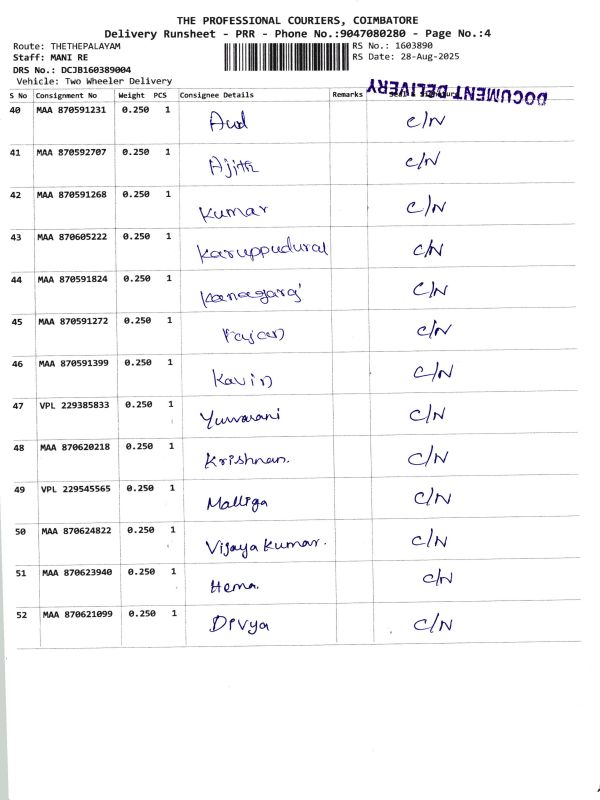 THE PROFESSIONAL COURIERS, COIMBATORE
Delivery Runsheet - PRR - Phone No.:9047080280 - Page No.:4
Route: THETHEPALAYAM RS No.: 1603890
Staff: MANI RE RS Date: 28-Aug-2025
DRS No.: DCJB160389004
Vehicle: Two Wheeler Delivery
DOCUMENT DELIVERY
S No Consignment No Weight PCS Consignee Details Remarks Seal & Signature
40 MAA 870591231 0.250 1 C/N
41 MAA 870592707 0.250 1 Ajith C/N
42 MAA 870591268 0.250 1 Kumar C/N
43 MAA 870605222 0.250 1 Karuppudurai C/N
44 MAA 870591824 0.250 1 Kanagaraj C/N
45 MAA 870591272 0.250 1 C/N
46 MAA 870591399 0.250 1 Kavin C/N
47 VPL 229385833 0.250 1 Yuvarani C/N
48 MAA 870620218 0.250 1 Krishnan. C/N
49 VPL 229545565 0.250 1 Malliga C/N
50 MAA 870624822 0.250 1 Vijaya Kumar. C/N
51 MAA 870623940 0.250 1 Hema. C/N
52 MAA 870621099 0.250 1 Divya C/N